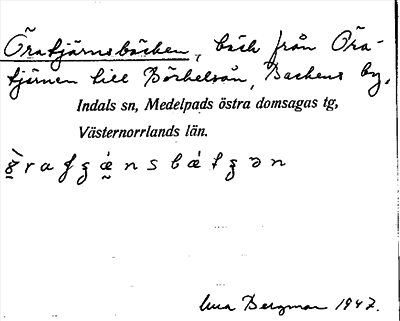 Öratjärnsbäcken, bäck från Öra-
tjärnen till Börhelsån, Backens by,
Indals sn, Medelpads östra domsagas tg,
Västernorrlands län.
Bergman 1947.